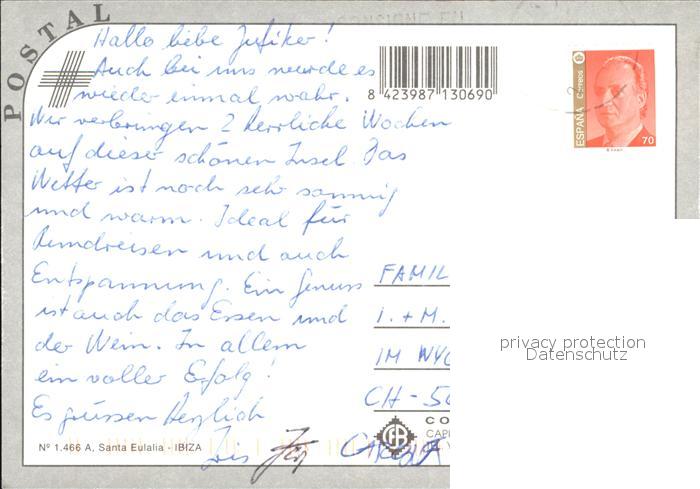 POSTAL
Hallo liebe Jufiker!
Auch bei uns wurde es
wieder einmal wahr.
Wir verbringen 2 herrliche Wochen
auf dieser schönen Insel. Das
Wetter ist noch sehr sonnig
und warm. Ideal für
Rundreisen und auch
Entspannung. Ein Genuss
ist auch das Essen und
der Wein. In allem
ein voller Erfolg!
Es grüssen Herzlich
Iris
8 423987 130690
ESPAÑA Correos
70
FAMIL
I. + M.
IM WYG
CH - 50
CO
CAPE
Nº 1.466 A, Santa Eulalia - IBIZA
privacy protection
Datenschutz